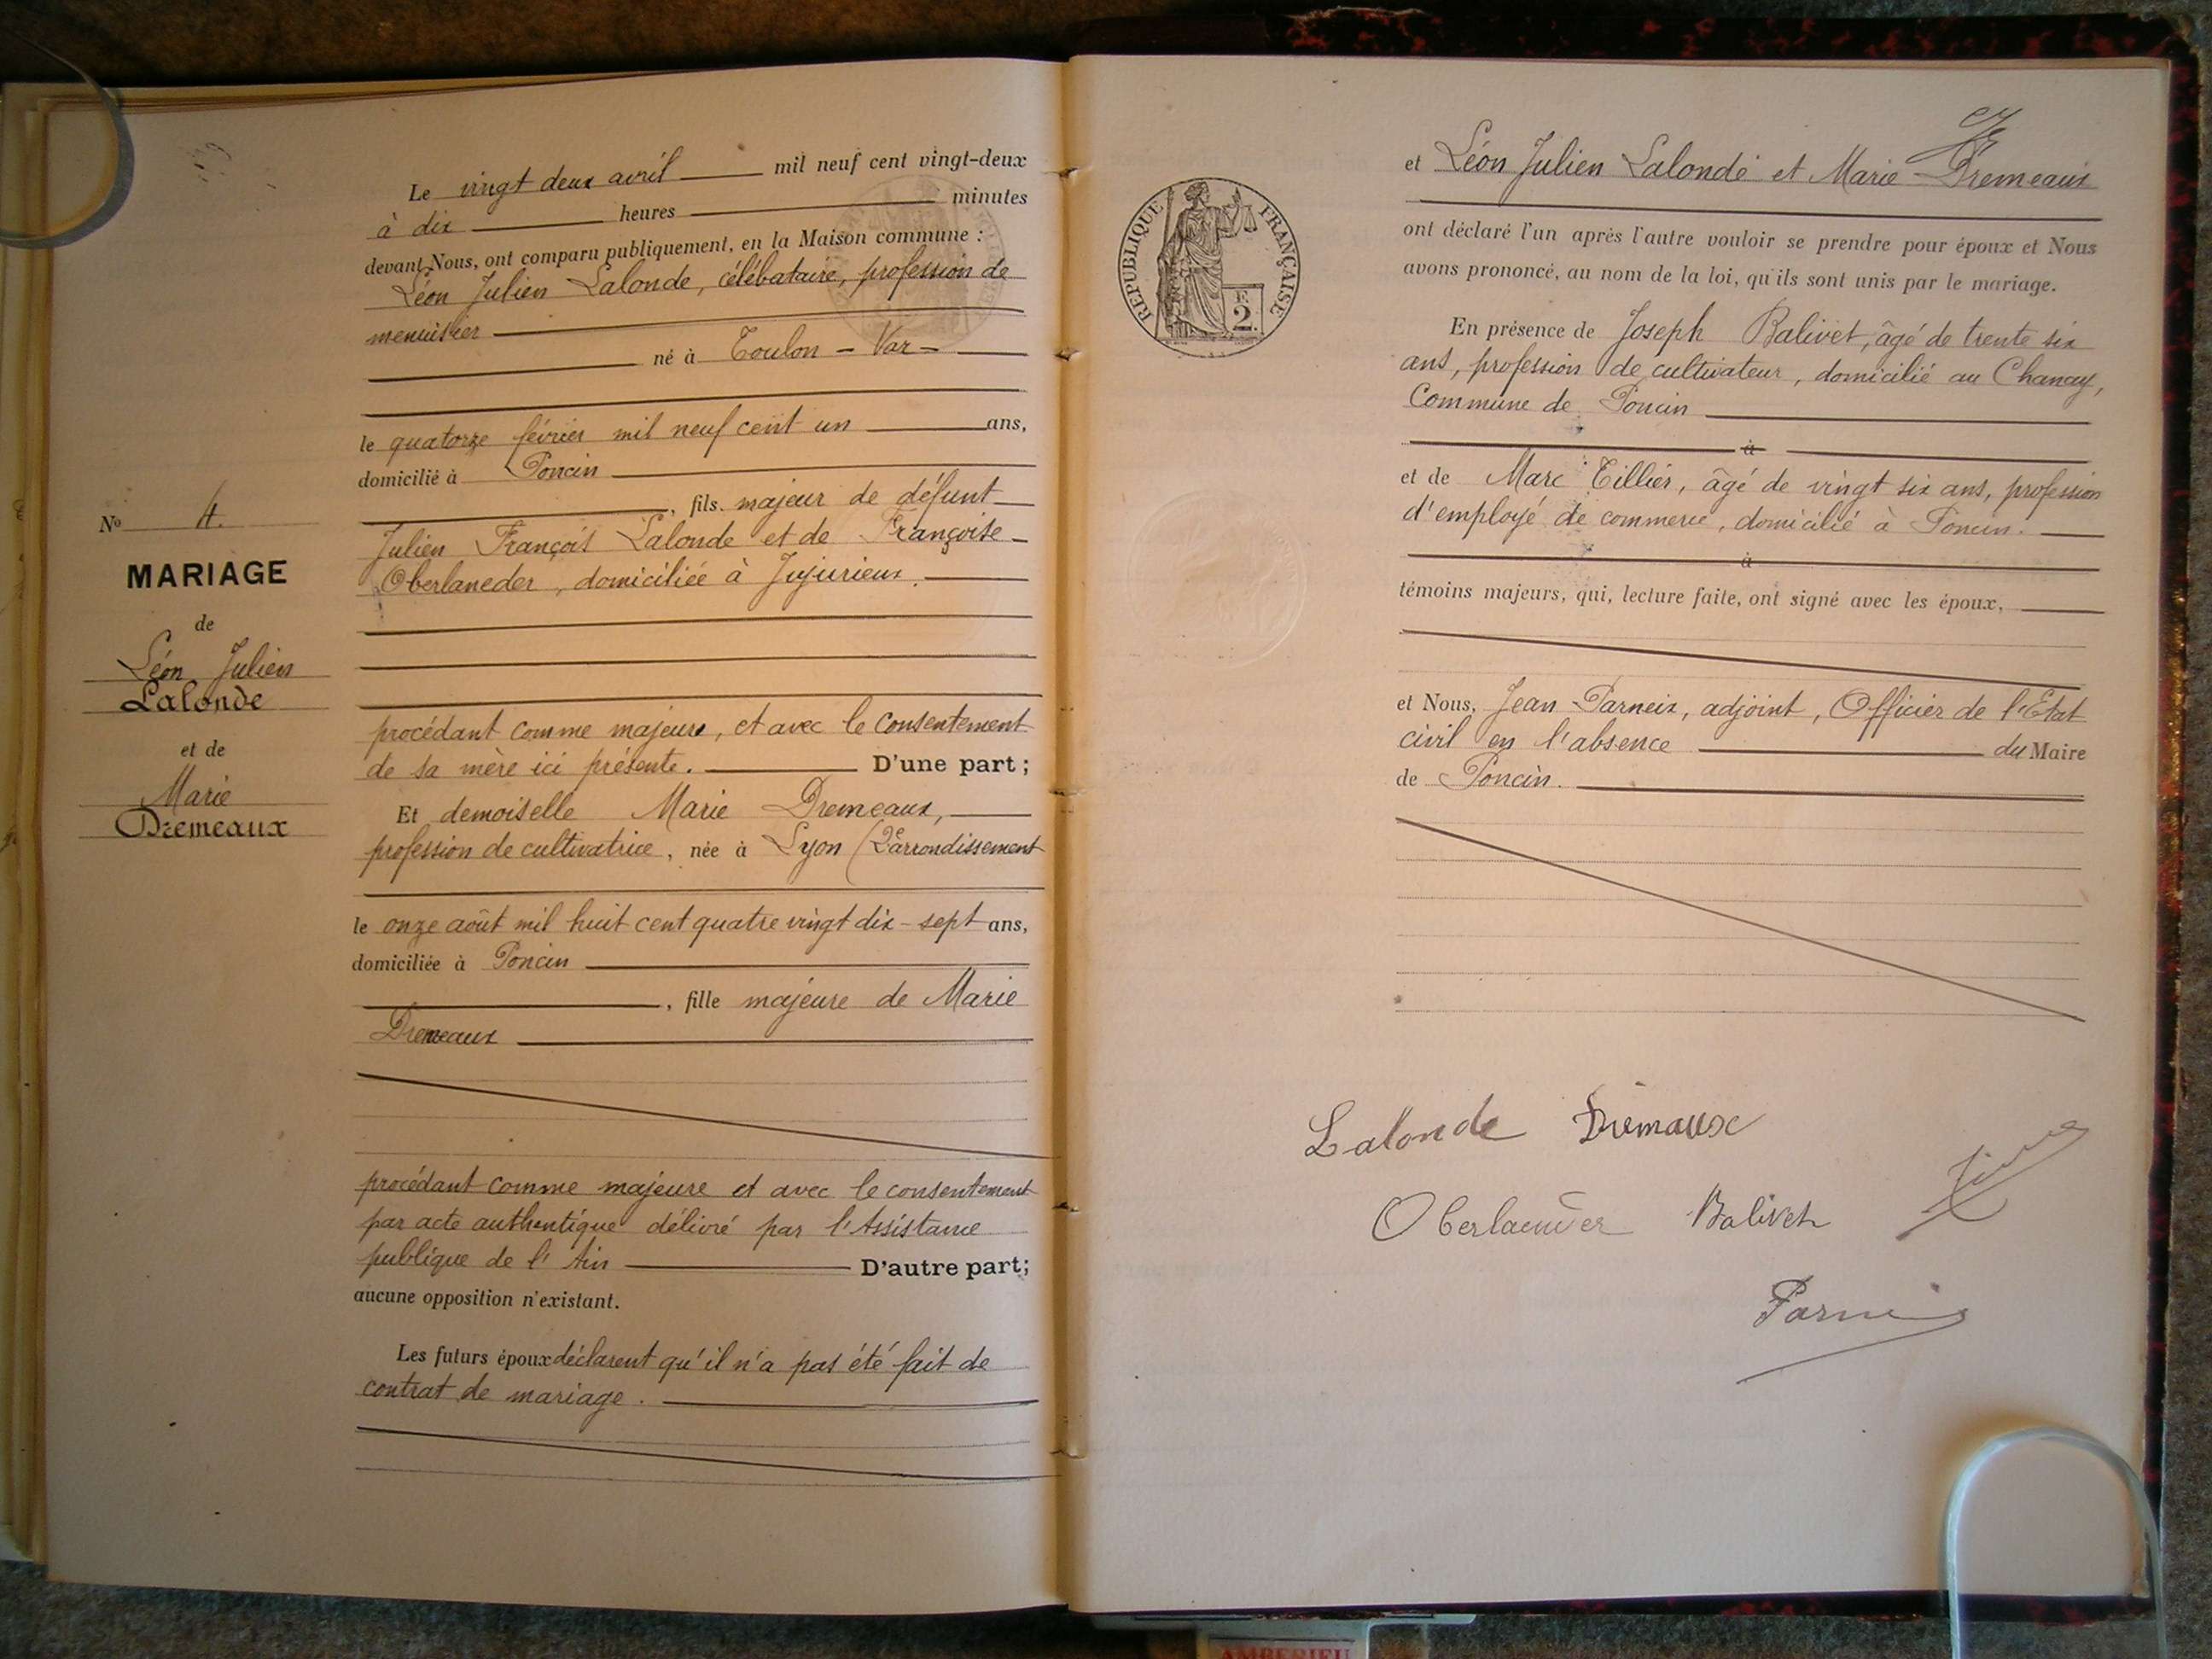 N° 4.
MARIAGE
de
Léon Julien
Lalonde
et de
Marie
Dremeaux
Le vingt deux avril mil neuf cent vingt-deux
à dix heures minutes
devant Nous, ont comparu publiquement, en la Maison commune :
Léon Julien Lalonde, célébataire, profession de
menuisier
né à Toulon - Var -
le quatorze février mil neuf cent un ans,
domicilié à Poncin
, fils majeur de défunt
Julien François Lalonde et de Françoise
Oberlaneder, domiciliée à Jujurieux.
procédant comme majeur, et avec le consentement
de sa mère ici présente. D'une part ;
Et demoiselle Marie Dremeaux,
profession de cultivatrice, née à Lyon (2e arrondissement
le onze août mil huit cent quatre vingt dix-sept ans,
domiciliée à Poncin
, fille majeure de Marie
Dremeaux
procédant comme majeure et avec le consentement
par acte authentique délivré par l'Assistance
publique de l'Ain D'autre part;
aucune opposition n'existant.
Les futurs époux déclarent qu'il n'a pas été fait de
contrat de mariage.
RÉPUBLIQUE FRANÇAISE
2
et Léon Julien Lalonde et Marie Dremeaux
ont déclaré l'un après l'autre vouloir se prendre pour époux et Nous
avons prononcé, au nom de la loi, qu'ils sont unis par le mariage.
En présence de Joseph Balivet, âgé de trente six
ans, profession de cultivateur, domicilié au Chanay,
Commune de Poncin
à
et de Marc Tillier, âgé de vingt six ans, profession
d'employé de commerce, domicilié à Poncin.
à
témoins majeurs, qui, lecture faite, ont signé avec les époux,
et Nous, Jean Parneix, adjoint, Officier de l'Etat
civil en l'absence du Maire
de Poncin.
Lalonde Dremaux
Oberlaender Balivet
AMBERIEU